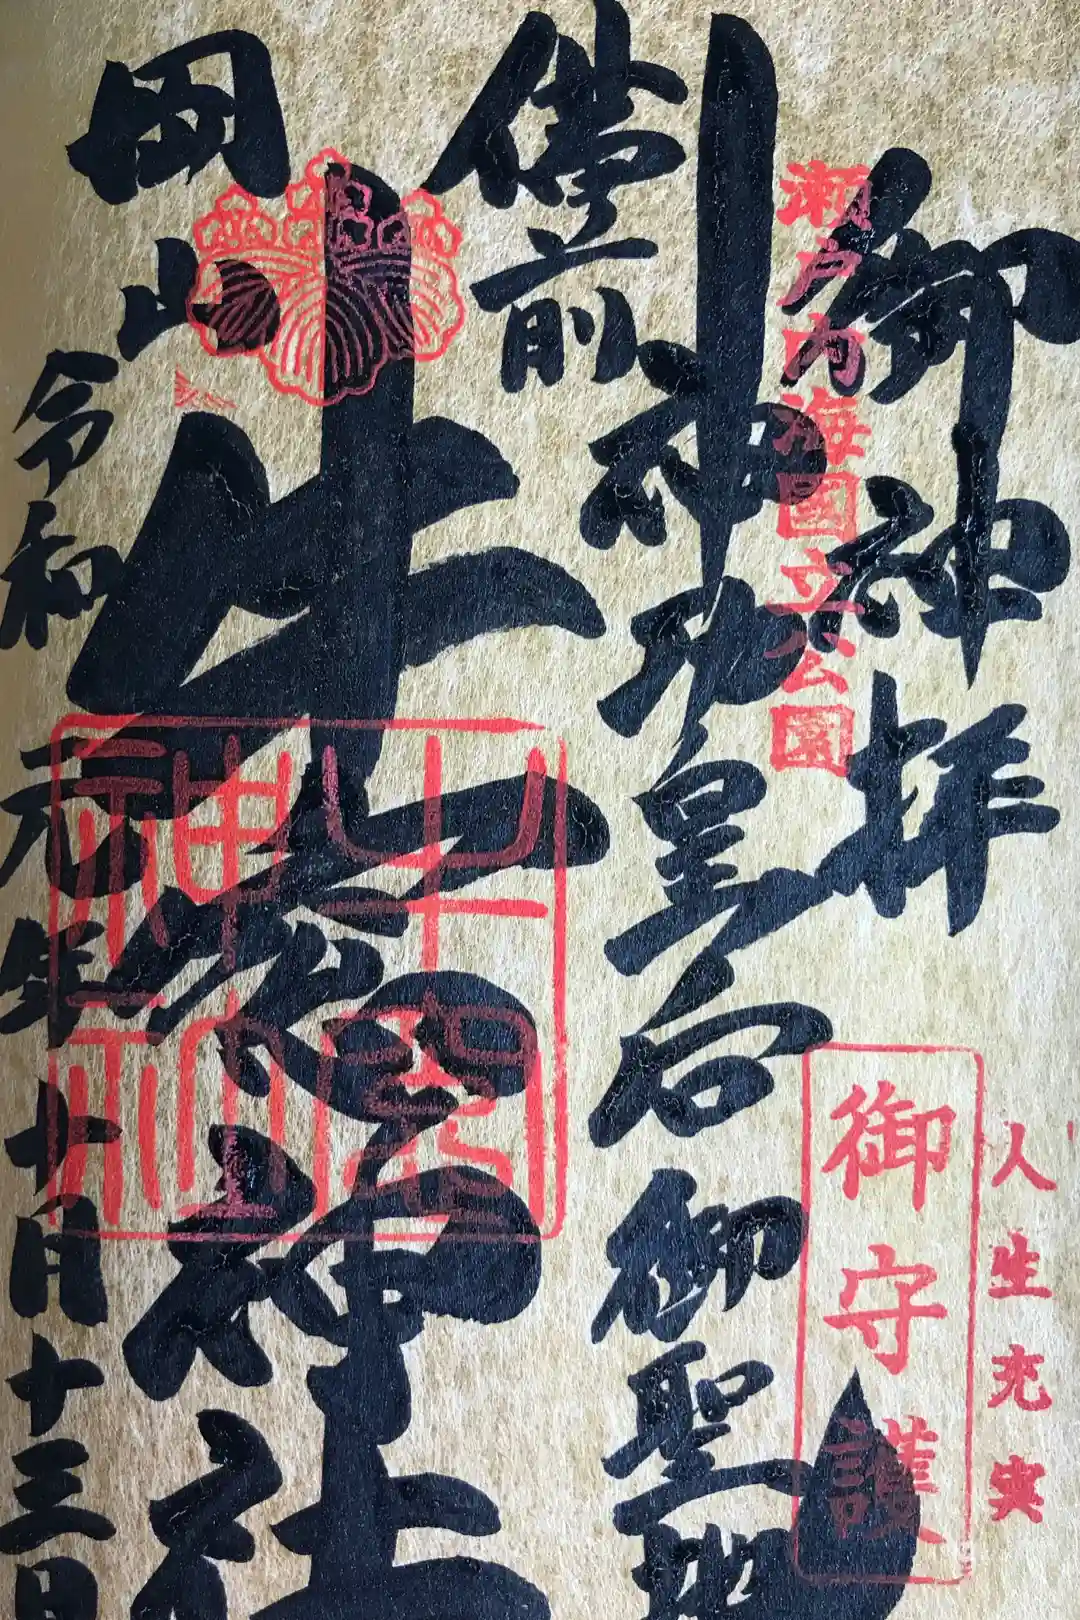 人生充実
御守護
御神拝
瀬戸内海国立公園
神功皇后御聖跡
備前
牛窓神社
牛窓神社
岡山
令和元年十月十三日